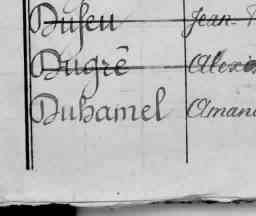 Dufeu Jean
Dugrê Alexis
Duhamel Amand